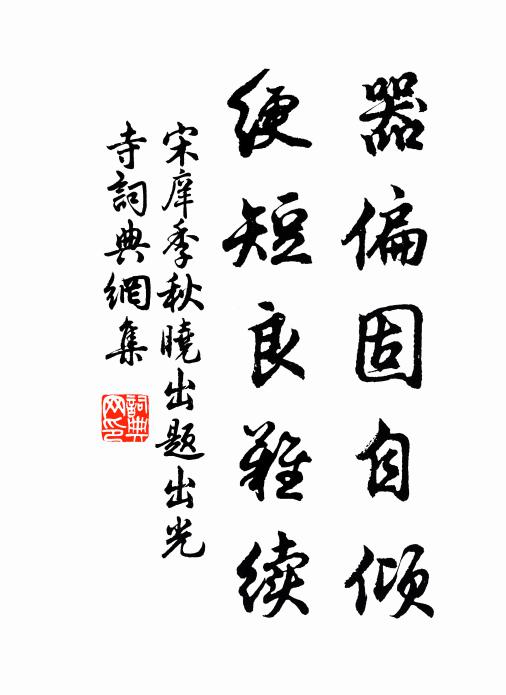 器偏固自倾
绠短良难续
宋庠季秋曉出题出光
寺詞典網集
詞典
网印